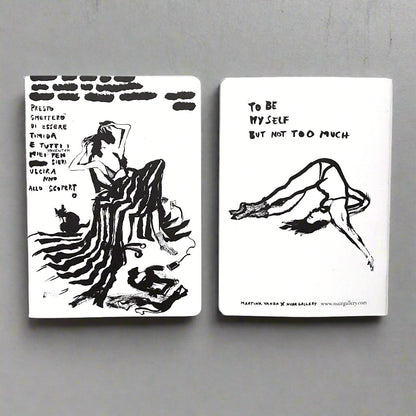 PRESTO
SMETTERÒ
DI ESSERE
TIMIDA
E TUTTI I
MIEI PEN
SIERI
USCIRA
NNO
ALLO SCOPERTO
TO BE
MYSELF
BUT NOT TOO MUCH
MARTINA VANDA X NUME GALLERY www.numegallery.com